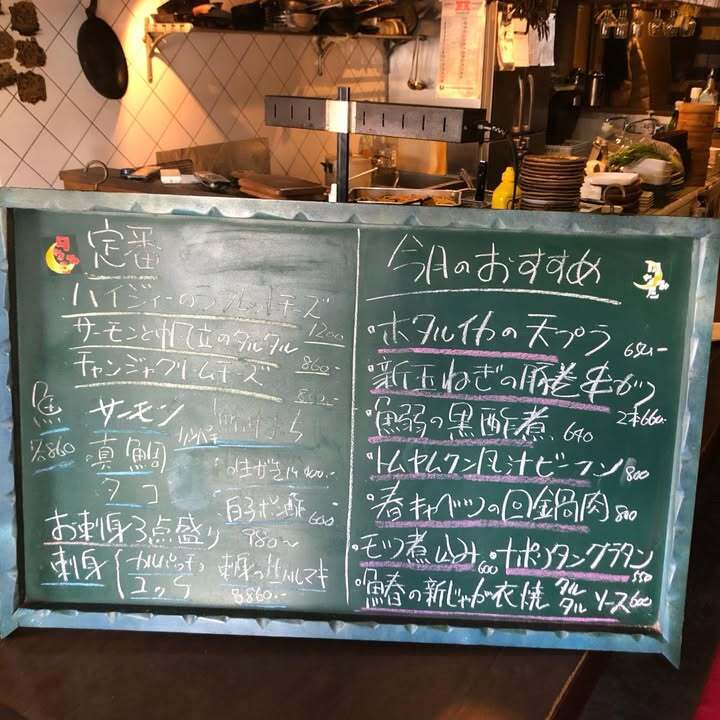 定番
ハイジィーのラクレットチーズ
1200
サーモンと帆立のタルタル
860-
チャンジャクリームチーズ
魚
サーモン
カンパチ
真鯛
タコ
白子ポン酢
600
お刺身3点盛り
980〜
刺身
カルパッチョ
ユッケ
860-
今月のおすすめ
・ホタルイカの天プラ
650-
・新玉ねぎの豚巻串カツ
2本660-
・鰯の黒酢煮 640
・トムヤムクン風汁ビーフン 800
・春キャベツの回鍋肉 800
・モツ煮込み 600 ・ナポリタングラタン 550
・鰆の新じゃが衣焼 タルタルソース 600